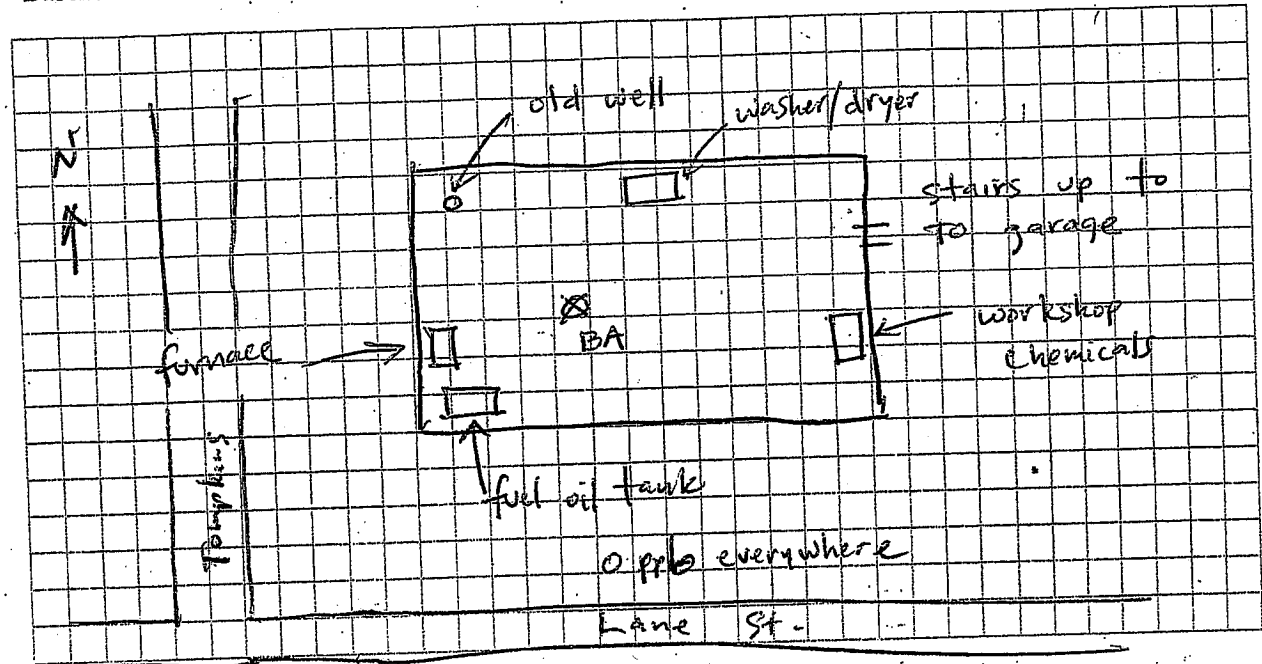 N
old well
washer/dryer
stairs up to
to garage
furnace
BA
workshop
chemicals
Tompkins
fuel oil tank
0 ppb everywhere
Lane St.